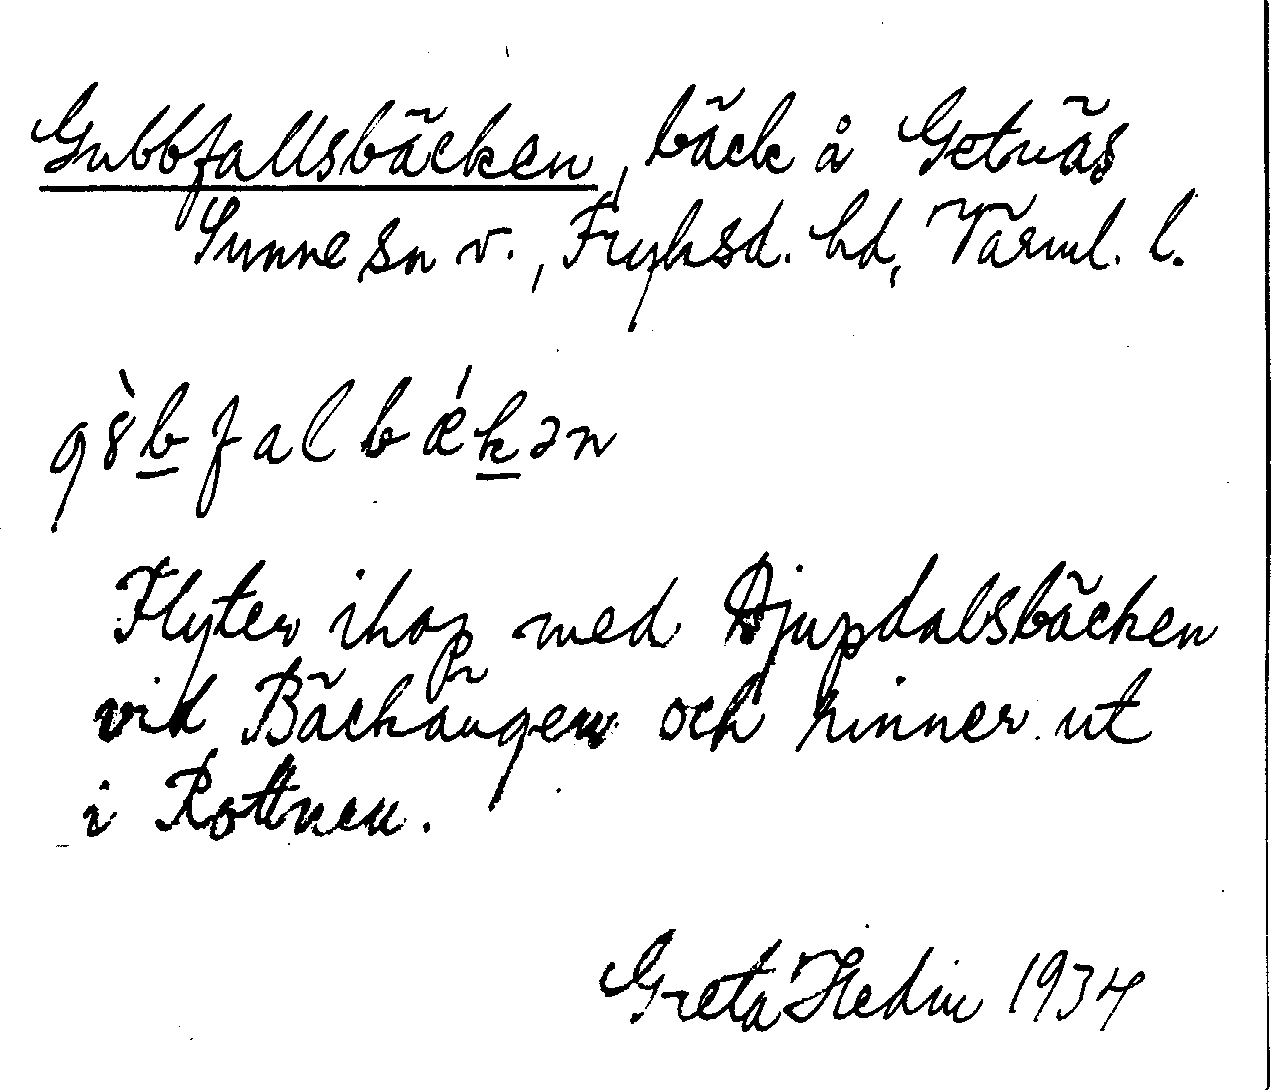 Gubbfallsbäcken, bäck å Getnäs
Sunne sn v., Fryksd. hd, Värml. l.
g8̀b̲falbǽk̲ən
Flyter ihop med Djupdalsbäcken
vid Bäckängen och rinner ut
i Rottnen.
Greta Hedin 1934